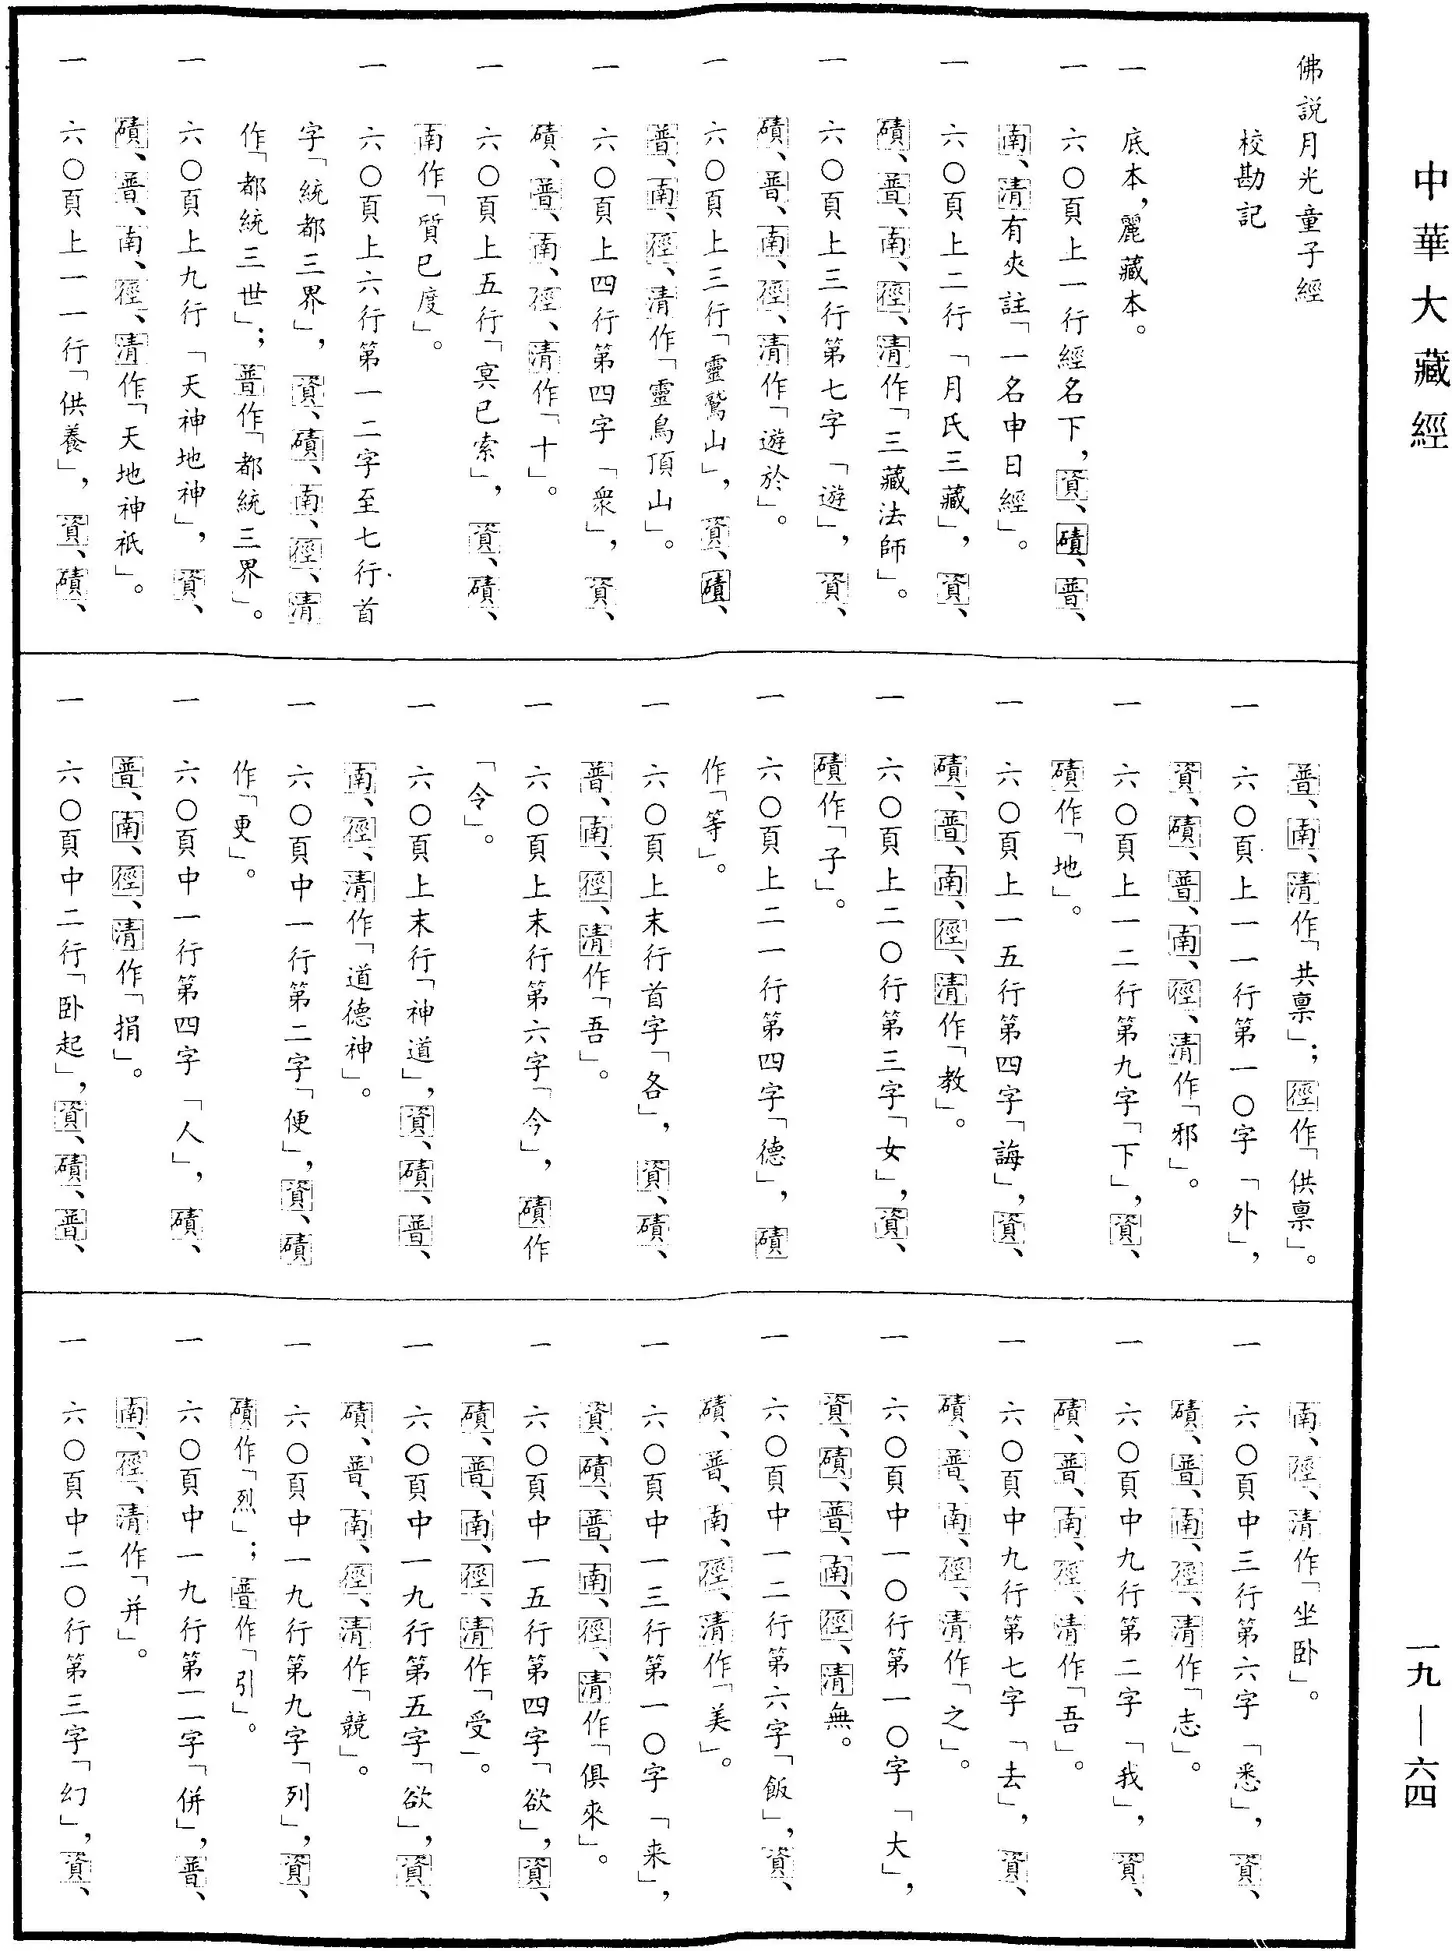 中華大藏經
佛説月光童子經
校勘記
一 底本，麗藏本。
一 六〇頁上一行經名下，資、磧、普、
南、清有夾註「一名申日經」。
一 六〇頁上二行「月氏三藏」，資、
磧、普、南、徑、清作「三藏法師」。
一 六〇頁上三行第七字「遊」，資、
磧、普、南、徑、清作「遊於」。
一 六〇頁上三行「靈鷲山」，資、磧、
普、南、徑、清作「靈鳥頂山」。
一 六〇頁上四行第四字「衆」，資、
磧、普、南、徑、清作「十」。
一 六〇頁上五行「寘已索」，資、磧、
南作「質已度」。
一 六〇頁上六行第一二字至七行首
字「統都三界」，資、磧、南、徑、清
作「都統三世」；普作「都統三界」。
一 六〇頁上九行「天神地神」，資、
磧、普、南、徑、清作「天地神祇」。
一 六〇頁上一一行「供養」，資、磧、
普、南、清作「共稟」；徑作「供稟」。
一 六〇頁上一一行第一〇字「外」，
資、磧、普、南、徑、清作「邪」。
一 六〇頁上一二行第九字「下」，資、
磧作「地」。
一 六〇頁上一五行第四字「誨」，資、
磧、普、南、徑、清作「教」。
一 六〇頁上二〇行第三字「女」，資、
磧作「子」。
一 六〇頁上二一行第四字「德」，磧
作「等」。
一 六〇頁上末行首字「各」，資、磧、
普、南、徑、清作「吾」。
一 六〇頁上末行第六字「今」，磧作
「令」。
一 六〇頁上末行「神道」，資、磧、普、
南、徑、清作「道德神」。
一 六〇頁中一行第二字「便」，資、磧
作「更」。
一 六〇頁中一行第四字「人」，磧、
普、南、徑、清作「捐」。
一 六〇頁中二行「卧起」，資、磧、普、
南、徑、清作「坐卧」。
一 六〇頁中三行第六字「悉」，資、
磧、普、南、徑、清作「志」。
一 六〇頁中九行第二字「我」，資、
磧、普、南、徑、清作「吾」。
一 六〇頁中九行第七字「去」，資、
磧、普、南、徑、清作「之」。
一 六〇頁中一〇行第一〇字「大」，
資、磧、普、南、徑、清無。
一 六〇頁中一二行第六字「飯」，資、
磧、普、南、徑、清作「美」。
一 六〇頁中一三行第一〇字「来」，
資、磧、普、南、徑、清作「俱來」。
一 六〇頁中一五行第四字「欲」，資、
磧、普、南、徑、清作「受」。
一 六〇頁中一九行第五字「欲」，資、
磧、普、南、徑、清作「競」。
一 六〇頁中一九行第九字「列」，資、
磧作「烈」；普作「引」。
一 六〇頁中一九行第一一字「併」，普、
南、徑、清作「并」。
一 六〇頁中二〇行第三字「幻」，資、
一九—六四